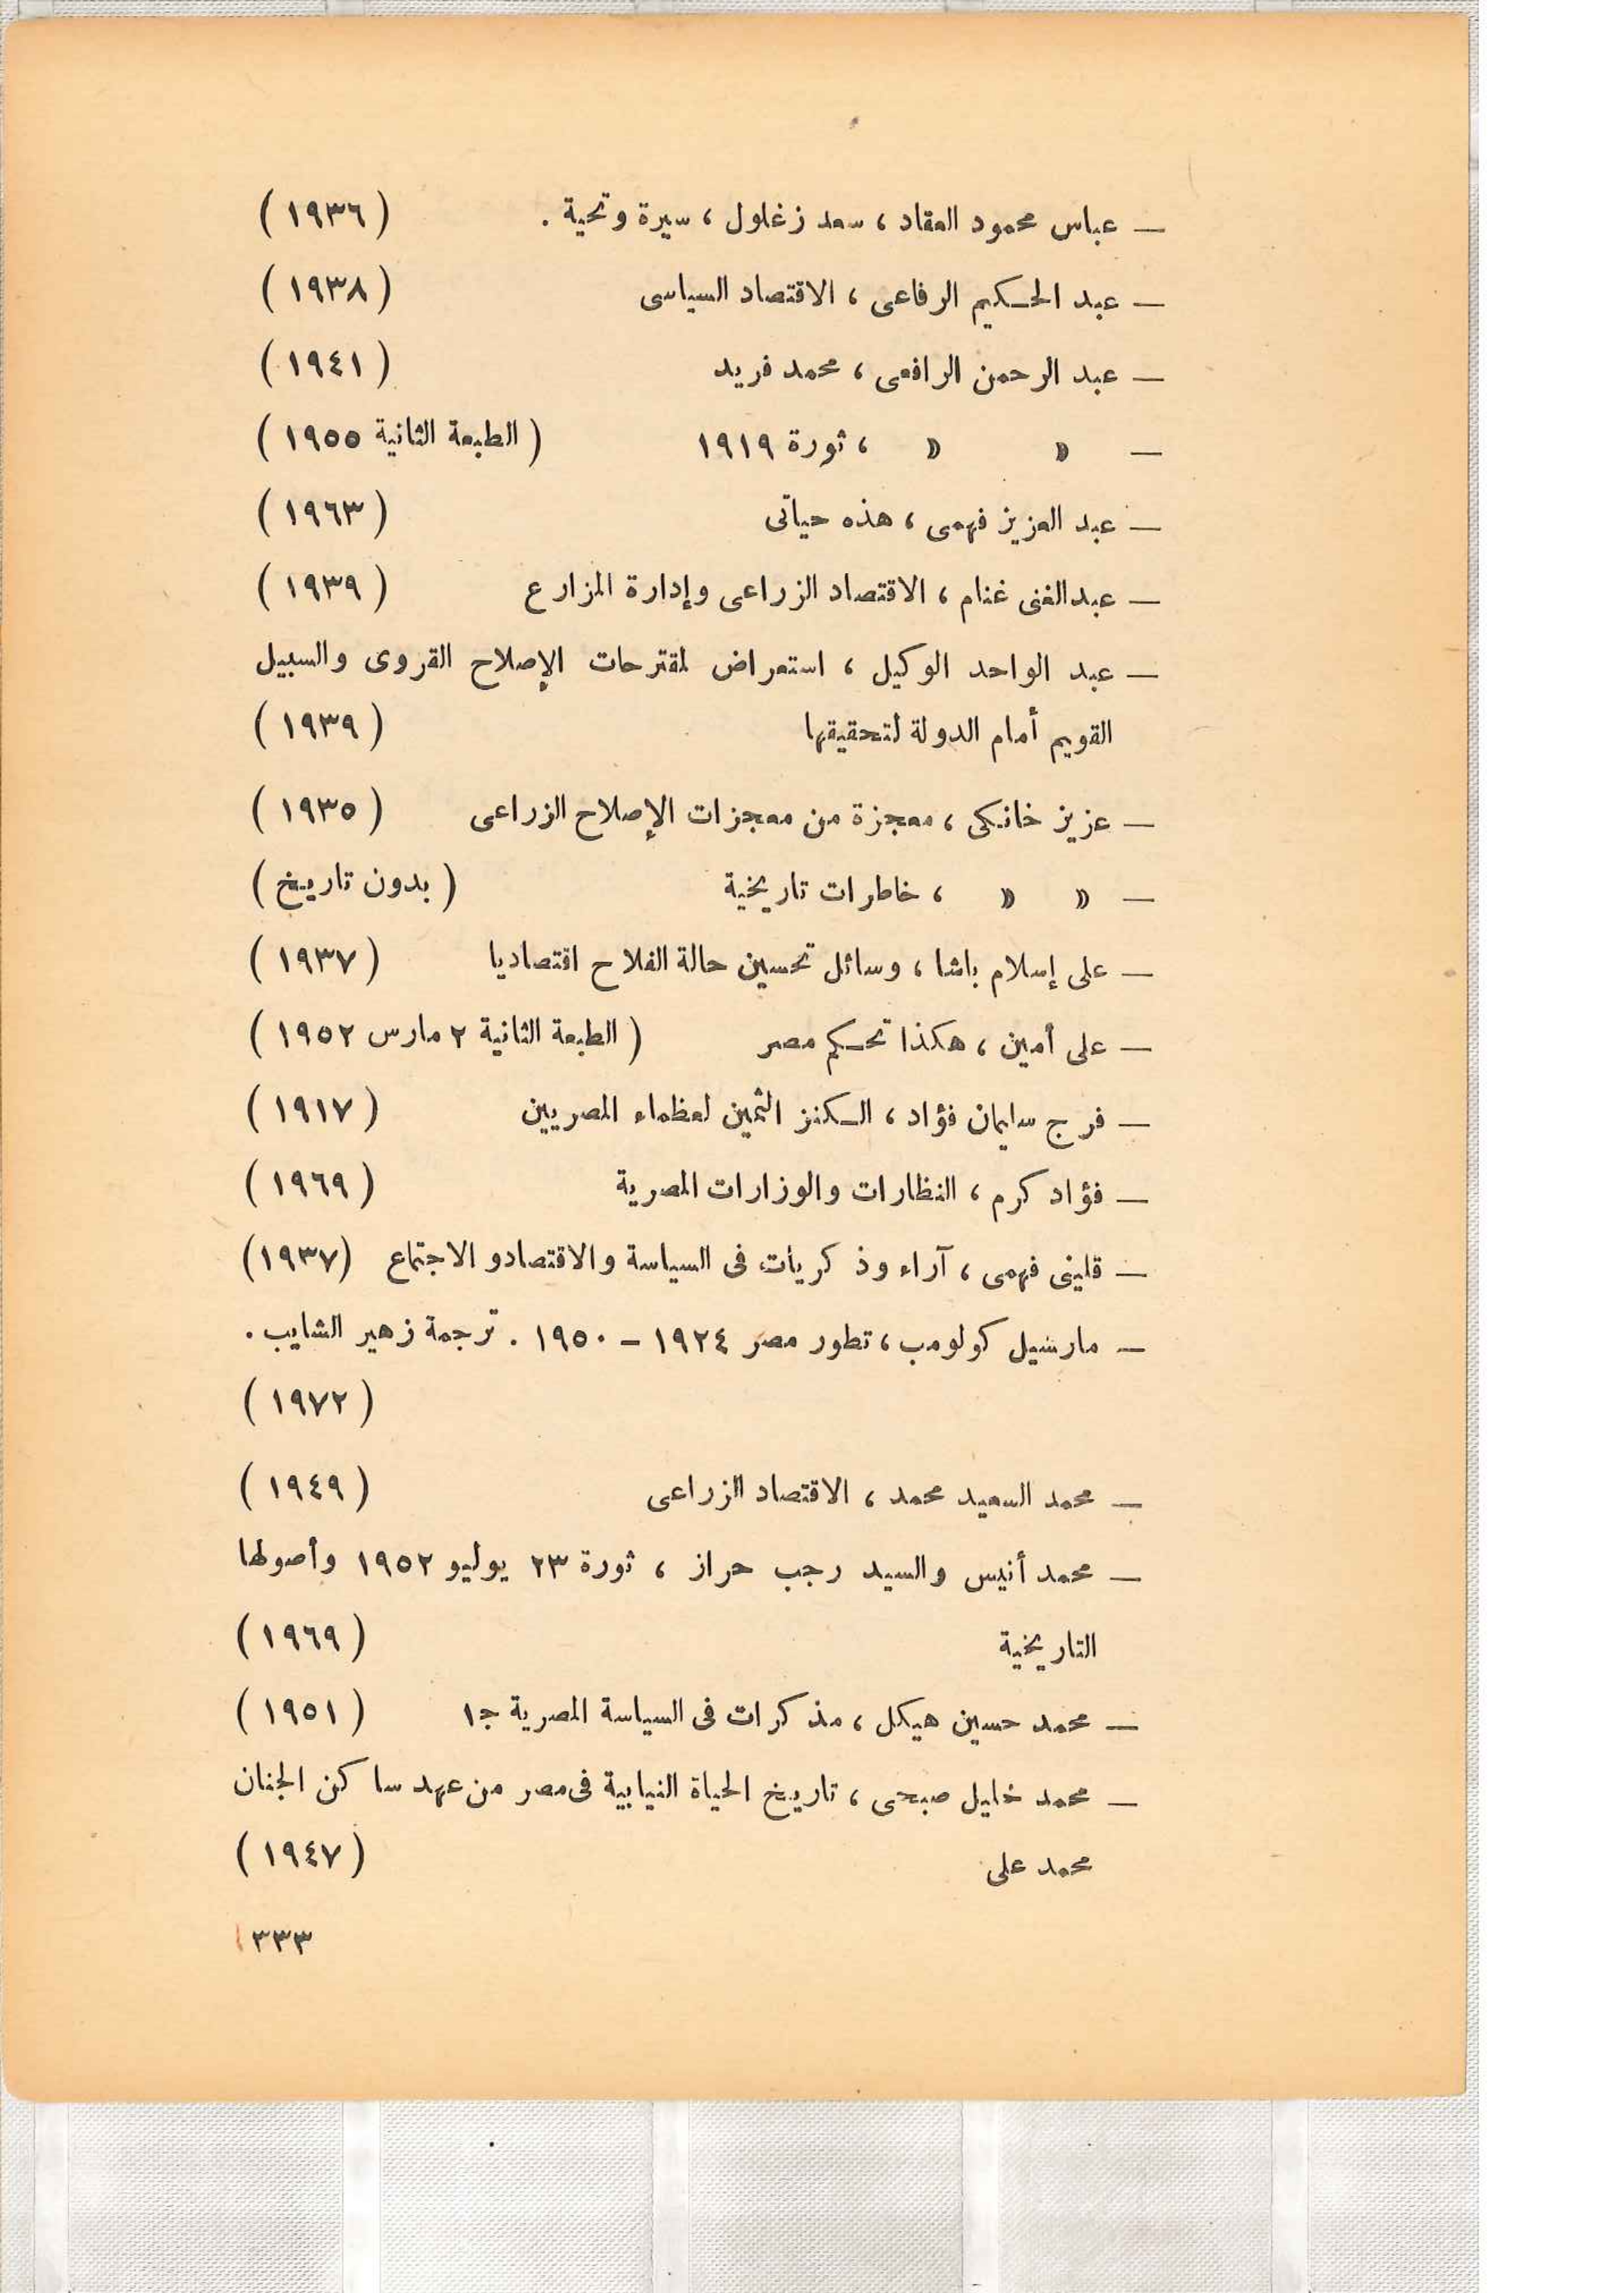 — عباس محمود العقاد ، سعد زغلول ، سيرة وتحية . ( ١٩٣٦ )
— عبد الحكيم الرفاعى ، الاقتصاد السياسى ( ١٩٣٨ )
— عبد الرحمن الرافعى ، محمد فريد ( ١٩٤١ )
— » » ، ثورة ١٩١٩ ( الطبعة الثانية ١٩٥٥ )
— عبد العزيز فهمى ، هذه حياتى ( ١٩٦٣ )
— عبدالغنى غنام ، الاقتصاد الزراعى وإدارة المزارع ( ١٩٣٩ )
— عبد الواحد الوكيل ، استعراض لمقترحات الإصلاح القروى والسبيل
القويم أمام الدولة لتحقيقها ( ١٩٣٩ )
— عزيز خانكى ، معجزة من معجزات الإصلاح الزراعى ( ١٩٣٥ )
— » » ، خاطرات تاريخية ( بدون تاريخ )
— على إسلام باشا ، وسائل تحسين حالة الفلاح اقتصاديا ( ١٩٣٧ )
— على أمين ، هكذا تحكم مصر ( الطبعة الثانية ٢ مارس ١٩٥٢ )
— فرج سليمان فؤاد ، الكنز الثمين لعظماء المصريين ( ١٩١٧ )
— فؤاد كرم ، النظارات والوزارات المصرية ( ١٩٦٩ )
— قلينى فهمى ، آراء وذكريات فى السياسة والاقتصادو الاجتماع (١٩٣٧)
— مارسيل كولومب ، تطور مصر ١٩٢٤ – ١٩٥٠ . ترجمة زهير الشايب .
( ١٩٧٢ )
— محمد السعيد محمد ، الاقتصاد الزراعى ( ١٩٤٩ )
— محمد أنيس والسيد رجب حراز ، ثورة ٢٣ يوليو ١٩٥٢ وأصولها
التاريخية ( ١٩٦٩ )
— محمد حسين هيكل ، مذكرات فى السياسة المصرية ج١ ( ١٩٥١ )
— محمد خليل صبحى ، تاريخ الحياة النيابية فى مصر من عهد ساكن الجنان
محمد على ( ١٩٤٧ )
٣٣٣